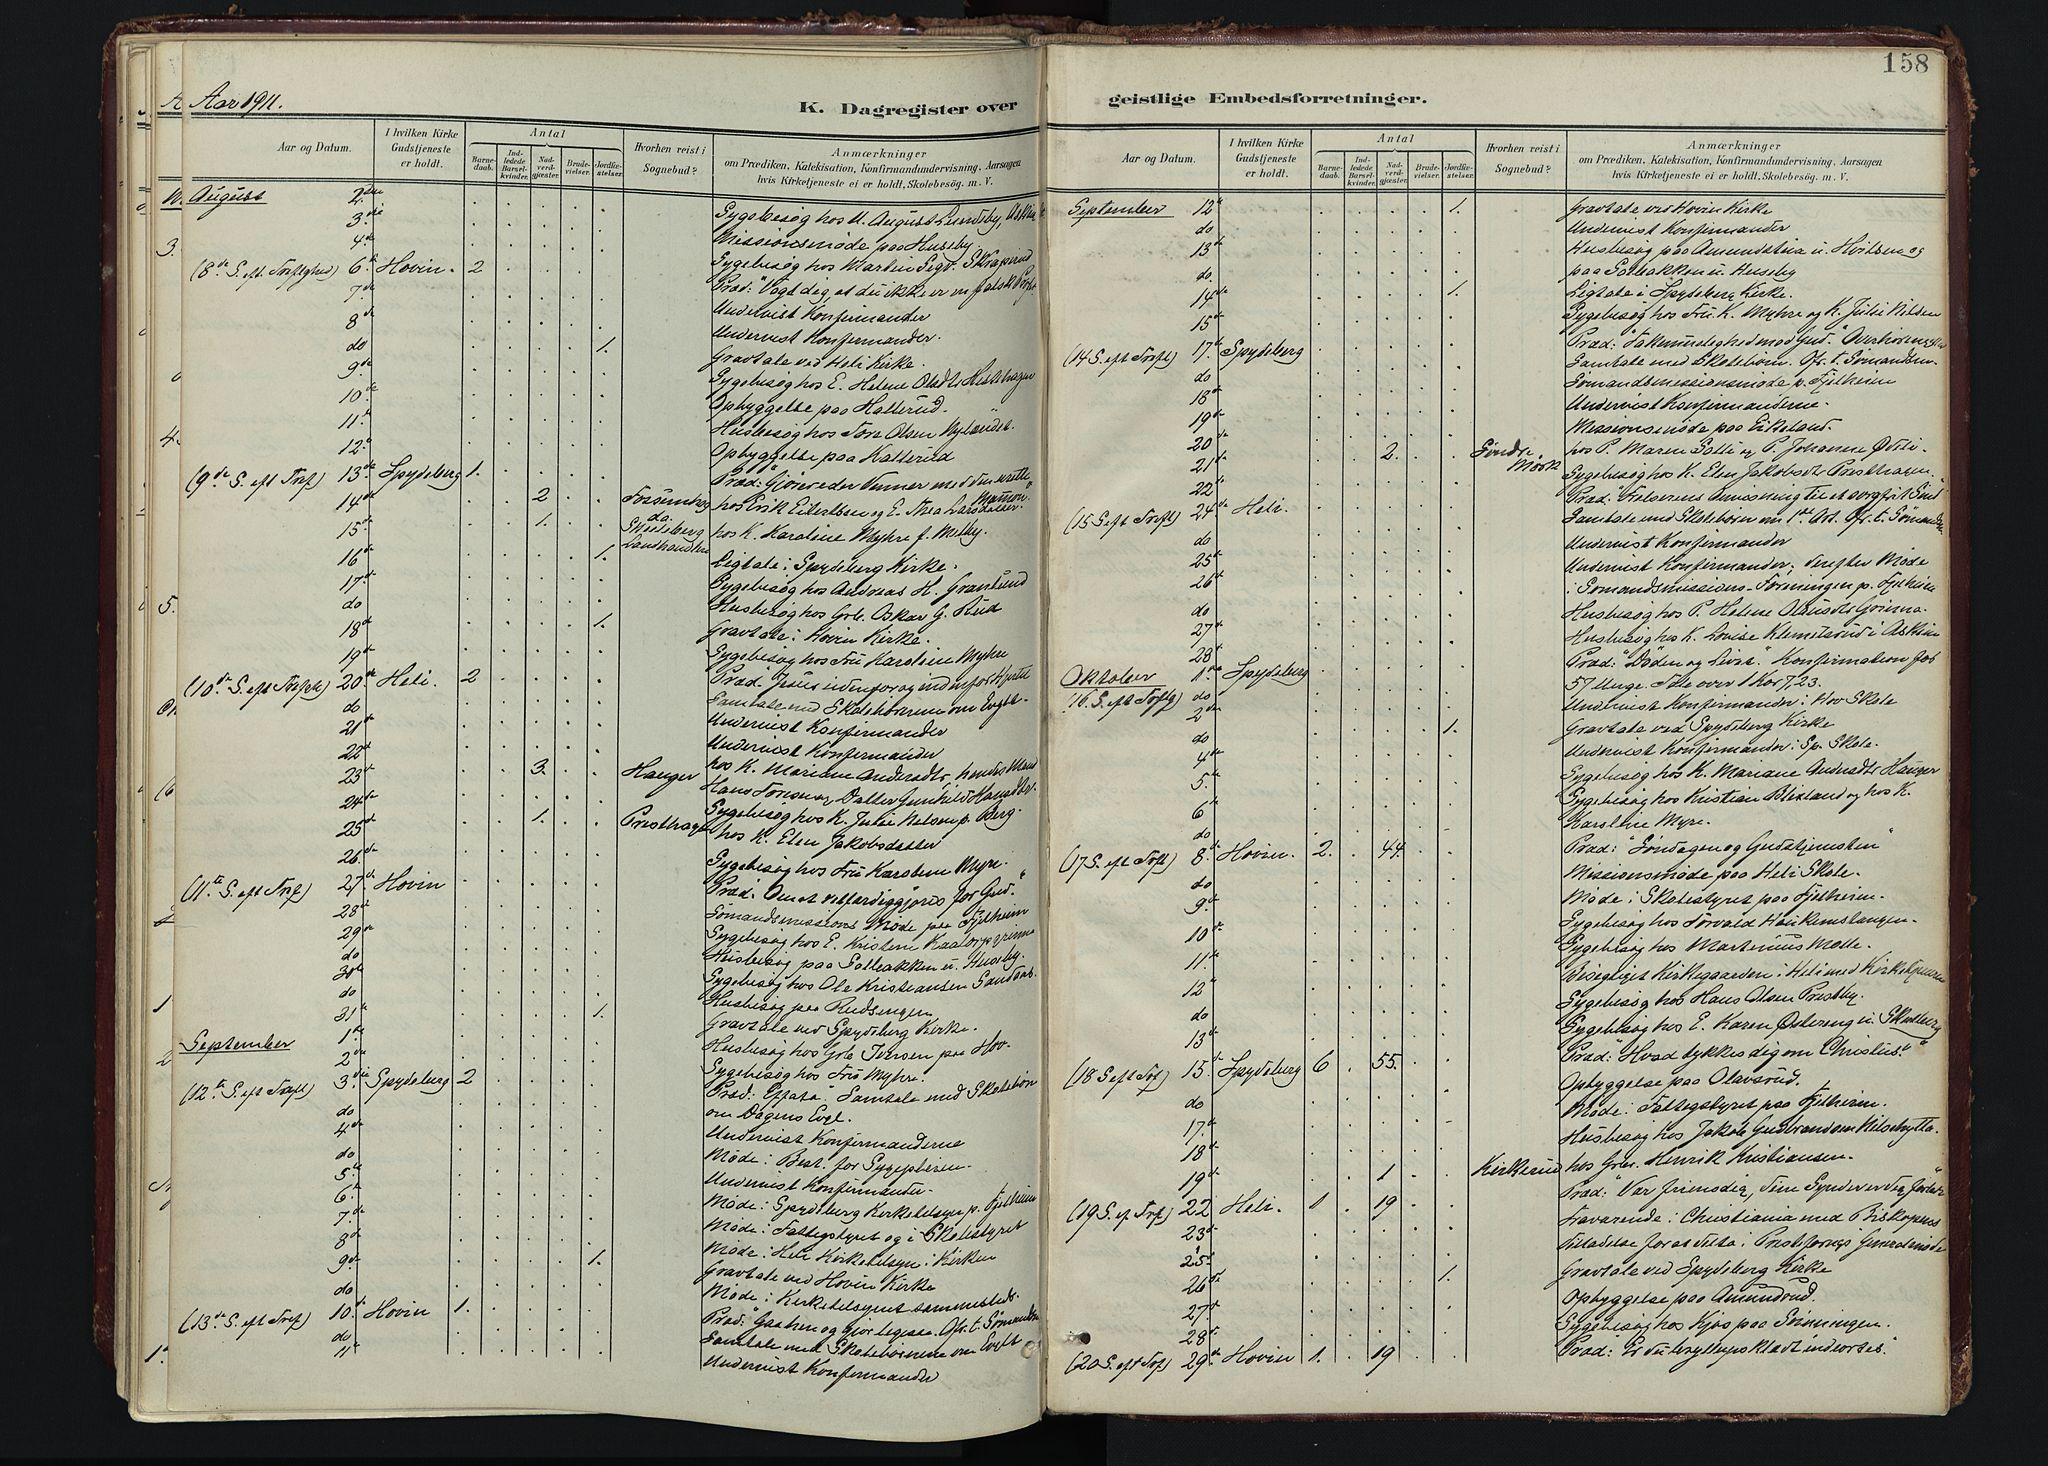 158
Aar 1911.
K. Dagregister over
geistlige Embedsforretninger.
Aar og Datum.
I hvilken Kirke Gudstjeneste er holdt.
Antal
Barne-daab.
Ind-ledede Barsel-kvinder.
Nad-verd-gjæster.
Brude-vielser.
Jordfæ-stelser.
Hvorhen reist i Sognebud?
Anmærkninger
om Prædiken, Katekisation, Konfirmandundervisning, Aarsagen
hvis Kirketjeneste ei er holdt, Skolebesög. m. V.
August 2den
3die Sygebesøg hos U. August Lundeby, Askim
4de Missionsmøde paa Huseby
(8de S. eft. Trefoldighed) 6te Hovin. 2 Sygebesøg hos Martin
7de Præd: "Vogt dig, at du ikke er en falsk
8de Undervist Konfirmander
do 1. Undervist Konfirmander.
9de Gravtale ved Heli Kirke.
10de Sygebesøg hos E. Helene
11te Opbyggelse paa Hallerud.
12te Husbesøg hos Tore Olsen Nylændet.
Opbyggelse paa Kallerud
(9de S. eft Tref) 13de Spydeberg 1. Præd: "Gjører eder Venner med den urette
14de 2 Fossumberg hos Erik og E. Thea Mammon."
15de 1. do. Skodsberg hos K. Karoline Myhre f. Melby.
16de 1. Ligtale i Spydeberg Kirke.
17de Sygebesøg hos Andreas H. Granlund
do Husbesøg hos Grb. Oskar G. Rud
18de 1. Gravtale i Hovin Kirke.
19de Sygebesøg hos Fru Karoline Myhre
(10de S. eft Trefoldt) 20de Heli. 2 Præd. Jesus udenfor og indenfor Hjertet
do Samtale med Skolebørnene om Evglt.
21de Undervist Konfirmander
22de Undervist Konfirmander
23de 3. Hauger hos K. Mariane Andersdtr, hendes Mand
24de Hans Datter Gunhild Hansdtr.
25de 1. Presthagen Sygebesøg hos K. Julie Nelsen p. Berg.
hos K. Elen Jakobsdatter
26de Sygebesøg hos Fru Karoline Myre.
(11te S. eft Tref) 27de Hovin Præd: "Om at retfærdiggjøres for Gud."
28de Sømandsmissions Møde paa Fjelheim
29de Sygebesøg hos E. Kristine
do Husbesøg paa Solbakken u. Huseby.
30te Sygebesøg hos Ole Kristiansen Sandaas.
do Husbesøg paa Rudsengen
31te 1. Gravtale ved Spydeberg Kirke.
September 1ste Husbesøg hos Grb Iversen paa Hov.
2den Sygebesøg hos Fru Myhre.
(12te S. eft Tref) 3die Spydeberg 2 Præd: "Effata" Samtale med Skolebørn
do om Dagens Evgl.
4de Undervist Konfirmanderne
do Møde i Best. for Sygepleien.
5te Undervist Konfirmander.
6te Møde i Spydeberg Kirketilsyn p. Fjelheim
7de Møde i Fattigstyret og i Skolestyret
8de Møde i Heli Kirketilsyn i Kirken
9de 1. Gravtale ved Hovin Kirke
do Møde i Kirketilsynet sammesteds.
(13de S. eft Tref) 10de Hovin 1. Præd: "Gaa hen og gjør ligesaa. Ofr. t. Sømandsm
do Samtale med Skolebørnene om Evglt
11te Undervist Konfirmander
Aar og Datum.
I hvilken Kirke Gudstjeneste er holdt.
Antal
Barne-daab.
Ind-ledede Barsel-kvinder.
Nad-verd-gjæster.
Brude-vielser.
Jordfæ-stelser.
Hvorhen reist i Sognebud?
Anmærkninger
om Prædiken, Katekisation, Konfirmandundervisning, Aarsagen
hvis Kirketjeneste ei er holdt, Skolebesög. m. V.
September 12te 1. Gravtale ved Hovin Kirke
do Undervist Konfirmander
13de Husbesøg paa Amundstua u. og
do. paa Solbakken u. Huseby
14de 1. Ligtale i Spydeberg Kirke.
15de Sygebesøg hos Fru K. Myhre og K. Julie Nilsen
(14 S. eft Trefl) 17de Spydeberg Præd: "Taknemmelighed mod Gud."
do Samtale med Skolebørn. Ofr. t. Sømandsm.
18de Sømandsmissionsmøde p. Fjelheim
19de Undervist Konfirmanderne.
20de Missionsmøde paa Eikeland.
21de 2. Søndre Mørk hos P. Maren og P. Johanne
22de Sygebesøg hos K. Elen Jakobsdtr Presthagen.
(15 S. eft Treft) 24de Heli. Præd: "Frelserens Anvisning til et sorgfrit Sind"
do Samtale med Skolebørn om 1ste Art. Ofr. t. Sømandsm
25de Undervist Konfirmander
26de Undervist Konfirmander; derefter Møde
do i Sømandsmissions-Foreningen p. Fjelheim
27de Husbesøg hos P. Helene
28de Husbesøg hos K. Lovise Klemetsrud i Askim
Oktober 1ste Spydeberg Præd: "Døden og Livet". Konfirmation for
16. S. eft Trefg do 57 Unge. Tale over 1 Kor 7,23.
2den Undervist Konfirmander i Hov Skole
do 1. Gravtale ved Spydeberg Kirke
4de Undervist Konfirmander i Sp. Skole.
5te Sygebesøg hos K. Mariane Andersdtr Hauger
6 Sygebesøg hos Kristian Blixland og hos K.
do Karoline Myre.
(17 S. eft Treft) 8de Hovin. 2. 44. Præd: "Søndagen og Gudstjenesten"
do Missionsmøde paa Heli Skole.
9de Møde i Skolestyret paa Fjelheim.
10de Sygebesøg hos Torvald
11te Sygebesøg hos Martinius Molle.
12te Besigtiget Kirkegaarden i Heli med Kirketilsynet
do Sygebesøg hos Hans Olsen Prestby.
13de Sygebesøg hos E. Karen Østereng u. Skulberg
(18 S eft Tref) 15de Spydeberg 6 55. Præd: "Hvad tykkes dig om Christus."
do Opbyggelse paa Olavsrud.
17de Møde i Fattigstyret paa Fjelheim.
18de Husbesøg hos Jakob Gudbrandsen
19de 1 Kirkerud hos Grbr. Henrik Kristiansen.
(19 S. ef. Tref) 22 Heli. 1 19 Præd: "Vær frimodig, dine Synder er dig forladt"
23de Fraværende i Christiania med Biskopens
25de Tilladelse for at delta i Prestefornings Generalmøde
26de 1. Gravtale ved Spydeberg Kirke
27de Opbyggelse paa Amundrud.
28de Sygebesøg hos
(20 S. eft Tref) 29de Hovin 1. 19 Præd: "Er du bryllupsklædt indvortes".